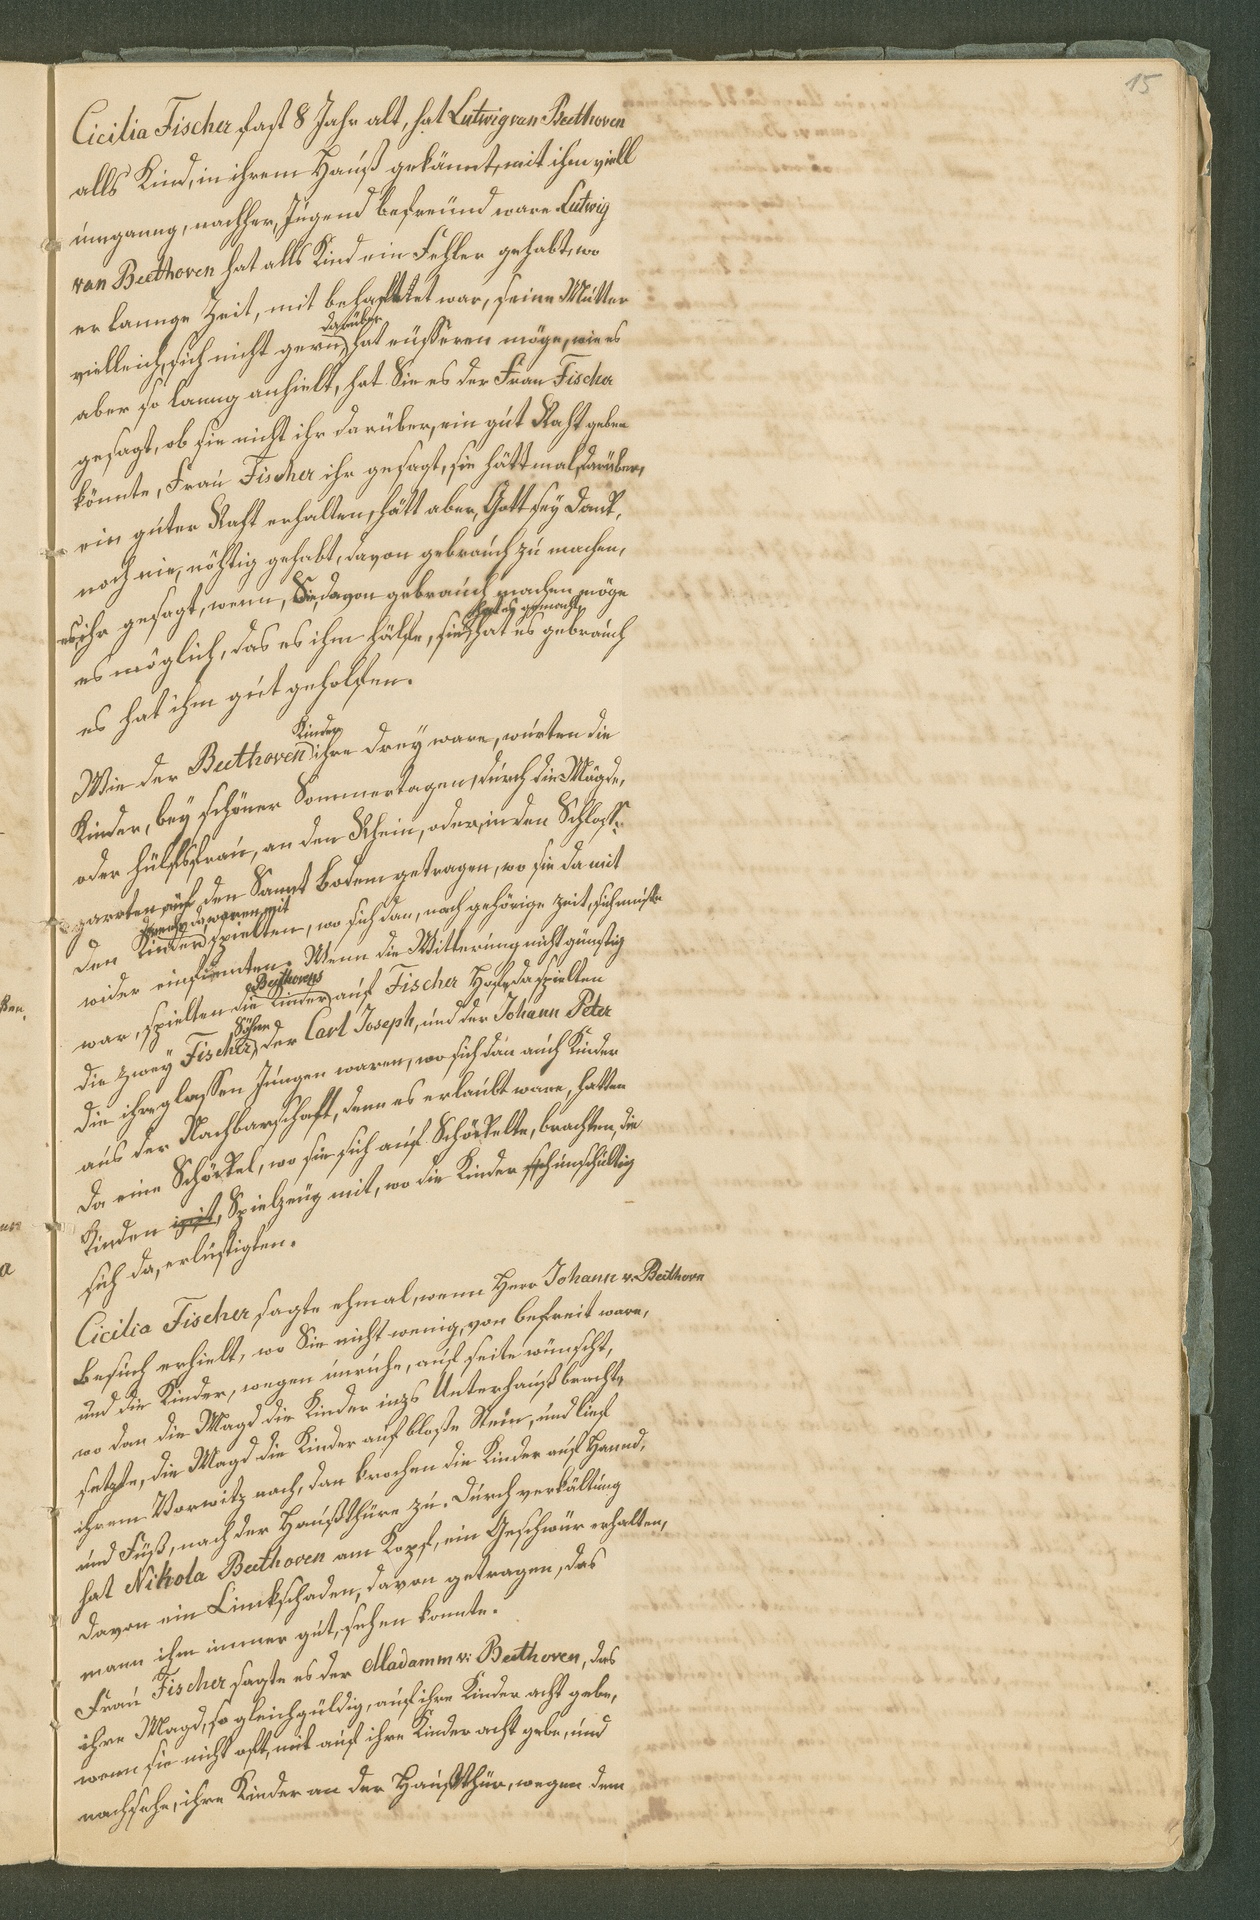 15
Cicilia Fischer fast 8 Jahr alt, hat Lutwig van Beethoven
alls Kind, in ihrem Hauß gekännt, mit ihm viell
umganng, nachher, Jugend befreünd ware Lutwig
van Beethoven hat alls Kind ein Fehler gehabt, wo
er lannge Zeit, mit behafttet war, seine Mutter
vielleich, sich nicht gern, darüber hat eüsseren möge, wie es
aber so lanng anhielt, hat Sie es der Frau Fischer
gesagt, ob sie nicht ihr darüber, ein gut Raht geben
könnte, Frau Fischer ihr gesagt, sie hätt mal, darüber,
ein guter Raht erhalten, hätt aber, Gott sey Dank,
noch nie, nöhtig gehabt, davon gebrauch zu machen,
es, ihr gesagt, wenn, Sie, davon gebrauch machen möge
es möglich, das es ihm hälfe, sie hat es gemacht, hat es gebrauch
es hat ihm gut geholfen.
Wie der Beethoven Kinder ihre drey ware, wurten die
Kinder, bey schöner Sommertagen, durch die Mägde,
oder hülfsfrau, an den Rhein, oder, in den Schloss-
garten, auf den Sannt bodem getragen, wo sie da mit
den Kinder spielten, wo sich dan, nach gehörige zeit, sich muste
wider einfinnten. Wenn die Witterung nicht günstig
war, spielten die Beethovens Kinder auf Fischer Hof, da spielten
die zwey Fischer, Söhne der Carl Joseph, und der Johann Peter
die ihre glassen Jungen waren, wo sich dan auch Kinder
aus der Nachbarschaft, denn es erlaubt ware, hatten
da eine Schöckel, wo sie sich auf Schöckelte, brachten, die
Kinden mit, Spielzeug mit, wo die Kinder sich unschultig
sich da, erlustigten.
Cicilia Fischer sagte ehmal, wenn Herr Johann v. Beethoven
besuch erhielt, wo Sie nicht wenig, von befreit ware,
und die Kinder, wegen unruhe, auf seite wünscht,
wo dan die Magd die Kinder ins Unterhauß brachte,
setzte, die Magd die Kinder auf bloße Stein, und lief
ihrem Vorwitz nach, dan krochen die Kinder auf Hannd,
und Füß, nach der Haußthüre zu. Durch verkältung
hat Nikola Beethoven am Kopf, ein Geschwür erhalten,
davon ein Linckschaden, davon getragen, das
mann ihm immer gut, sehen konnte.
Frau Fischer sagte es der Madamm v: Beethoven, das
ihre Magd, so gleichgüldig, auf ihre Kinder acht gebe,
wenn sie nicht oft, mit auf ihre Kinder acht gebe, und
nachsehe, ihre Kinder an der Haußthür, wegen dem